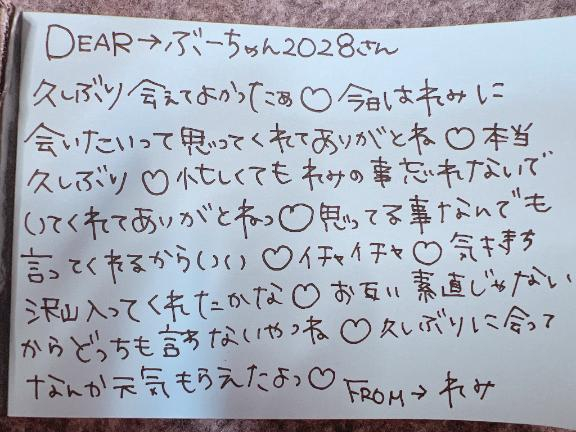 DEAR→ぶーちゃん2028さん
久しぶり会えてよかったぁ♡今日はれみに
会いたいって思ってくれてありがとね♡本当
久しぶり♡忙しくてもれみの事忘れないで
いてくれてありがとねっ♡思ってる事なんでも
言ってくれるからいい♡イチャイチャ♡気持ち
沢山入ってくれたかな♡お互い素直じゃない
からどっちも言わないやつね♡久しぶりに会って
なんか元気もらえたよっ♡FROM→れみ